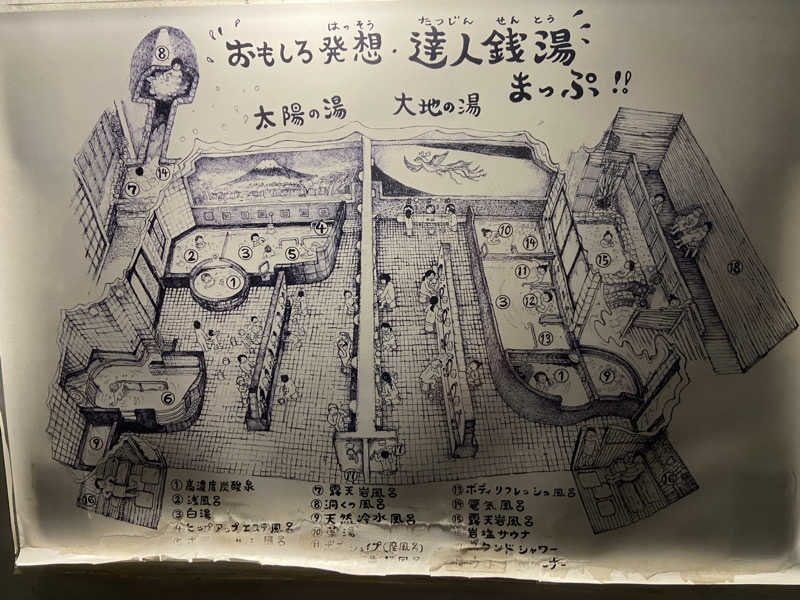 はっそう たつじん せんとう
おもしろ発想・達人銭湯
まっぷ!!
太陽の湯
大地の湯
⑧
⑦ ⑭
② ③ ⑤ ④
①
⑥
⑨
⑯
⑩
⑭
⑪
③ ⑫
⑬
① ⑨
⑮
⑱
⑯
⑰ ⑰
①高濃度炭酸泉
②浅風呂
③白湯
④ヒップアップエステ風呂
⑦露天岩風呂
⑧洞くつ風呂
⑨天然冷水風呂
⑩薬湯
(座風呂)
⑬ボディリフレッシュ風呂
⑭電気風呂
⑮露天岩風呂
岩塩サウナ
ンドシャワー